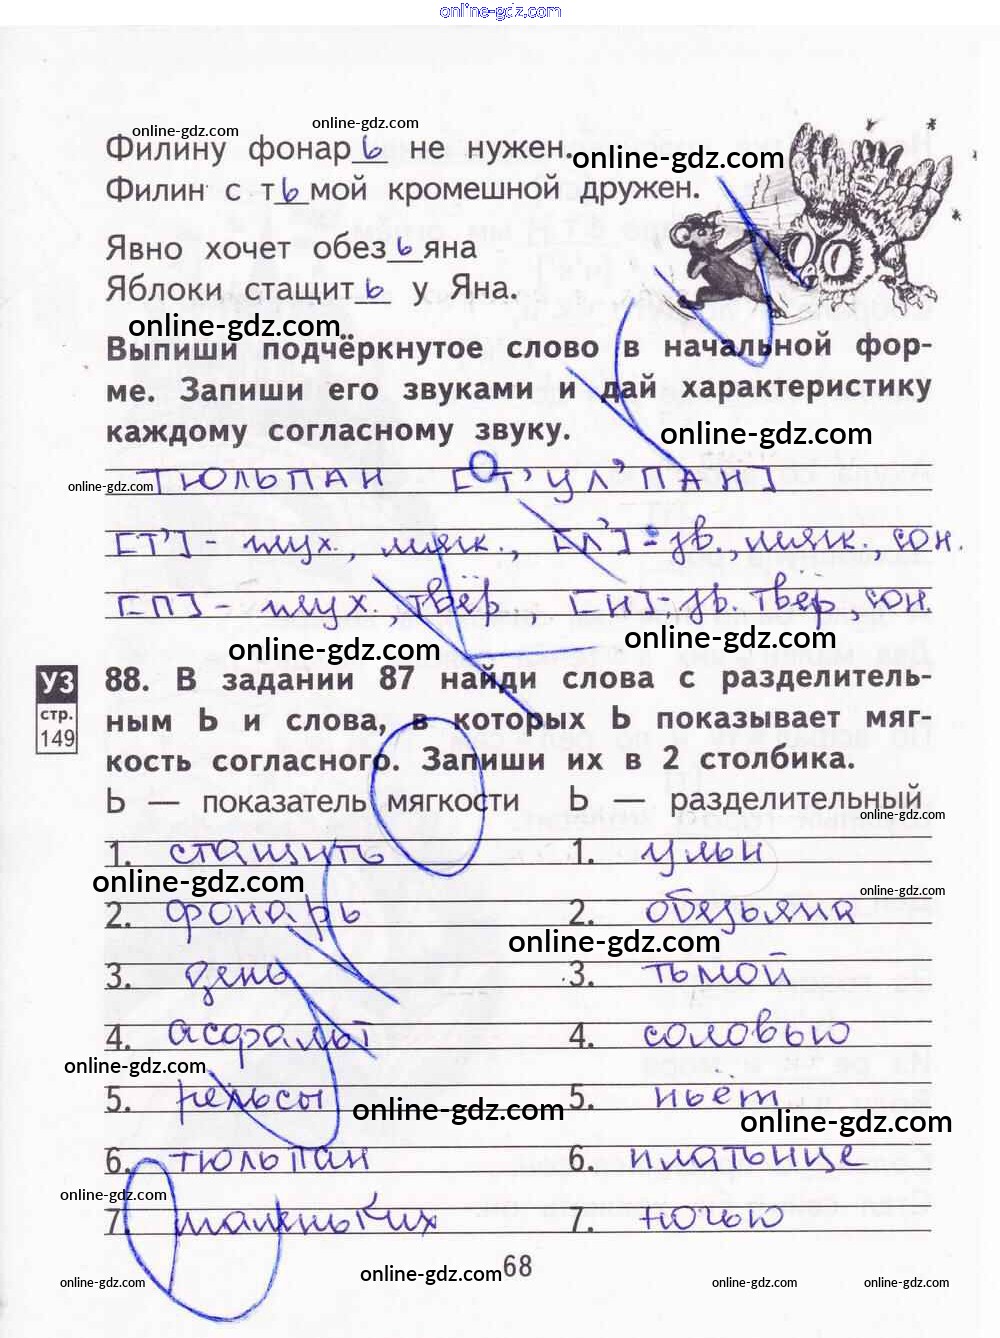 online-gdz.com
online-gdz.com online-gdz.com
Филину фонарь не нужен. online-gdz.com
Филин с тьмой кромешной дружен.
Явно хочет обезьяна
Яблоки стащить у Яна.
online-gdz.com
Выпиши подчёркнутое слово в начальной фор-
ме. Запиши его звуками и дай характеристику
каждому согласному звуку.
online-gdz.com
online-gdz.com тюльпан [т'ул'пан]
[т'] - глух., мягк., [л'] - зв., мягк., сон.
[п] - глух., твёр, [н] - зв. твёр, сон.
online-gdz.com online-gdz.com
УЗ
стр.
149
88. В задании 87 найди слова с разделитель-
ным Ь и слова, в которых Ь показывает мяг-
кость согласного. Запиши их в 2 столбика.
Ь — показатель мягкости Ь — разделительный
online-gdz.com
1. стащить 1. ульи
online-gdz.com online-gdz.com
2. фонарь 2. обезьяна
online-gdz.com
3. день 3. тьмой
4. асфальт 4. соловью
online-gdz.com
5. рельсы 5. пьёт
online-gdz.com online-gdz.com
6. тюльпан 6. платьице
online-gdz.com
7. маленьких 7. ночью
online-gdz.com 68
online-gdz.com online-gdz.com online-gdz.com